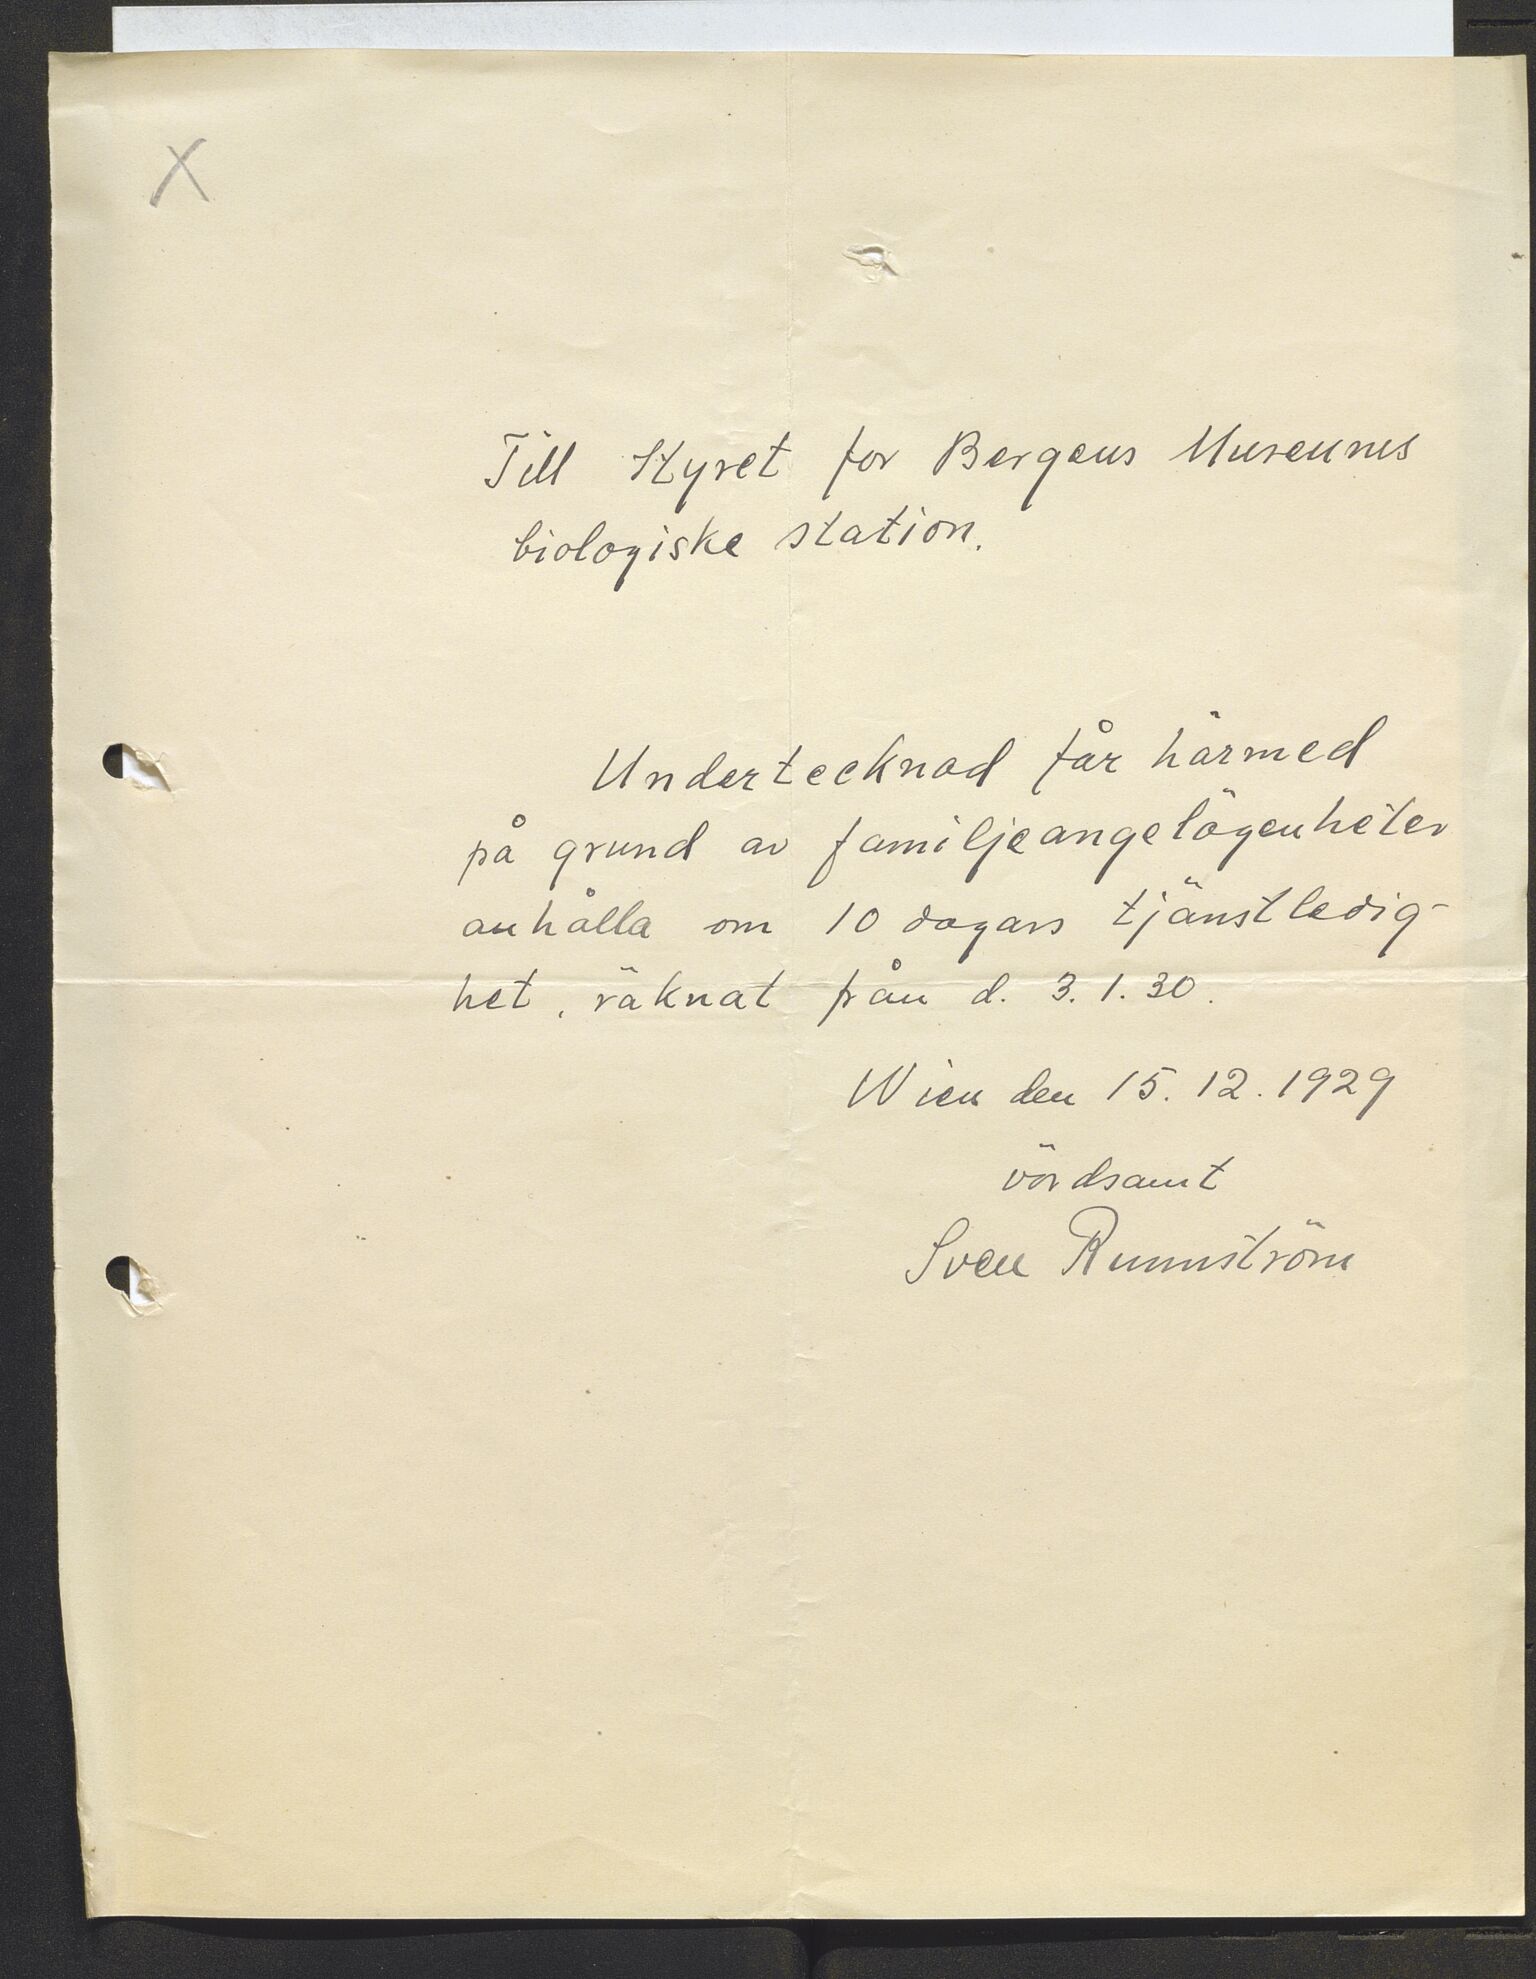 X
Till Styret for Bergens Museums
biologiske station.
Undertecknad får härmed
på grund av familjeangelägenheter
anhålla om 10 dagars tjänstledig-
het, räknat från d. 3.1.30.
Wien den 15.12.1929
vördsamt
Sven Runnström